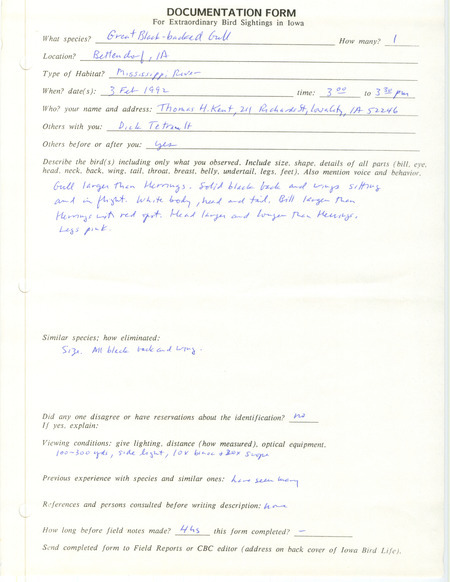 DOCUMENTATION FORM
For Extraordinary Bird Sightings in Iowa
What species? Great Black-backed Gull How many? 1
Location? Bettendorf, IA
Type of Habitat? Mississippi River
When? date(s): 3 Feb 1992 time: 3 00 to 3 30 pm
Who? your name and address: Thomas H. Kent, 211 Richards St, IA 52246
Others with you: Dick Tetrault
Others before or after you: yes
Describe the bird(s) including only what you observed. Include size, shape, details of all parts (bill, eye,
head, neck, back, wing, tail, throat, breast, belly, undertail, legs, feet). Also mention voice and behavior.
Gull larger than Herrings. Solid black back and wings sitting
and in flight. White body, head and tail. Bill larger than
Herrings with red spot. Head larger and longer than Herrings.
Legs pink.
Similar species; how eliminated:
Size. All black back and wing.
Did any one disagree or have reservations about the identification? no
If yes, explain:
Viewing conditions: give lighting, distance (how measured), optical equipment.
100-300 yds, side light, 10x binocs + 20x scope
Previous experience with species and similar ones: have seen many
References and persons consulted before writing description: none
How long before field notes made? 4 hs this form completed? –
Send completed form to Field Reports or CBC editor (address on back cover of Iowa Bird Life).